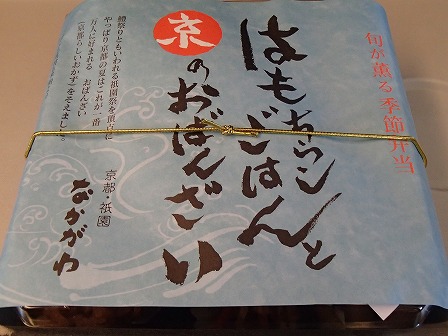 旬が薫る、季節弁当
はもちらしごはんと
京のおばんざい
鱧祭りともいわれる祇園祭を頂点に
やっぱり京都の夏はこれが一番
万人に好まれる おばんざい
(京都らしいおかず)をそえました。
京都・祇園
なかがわ